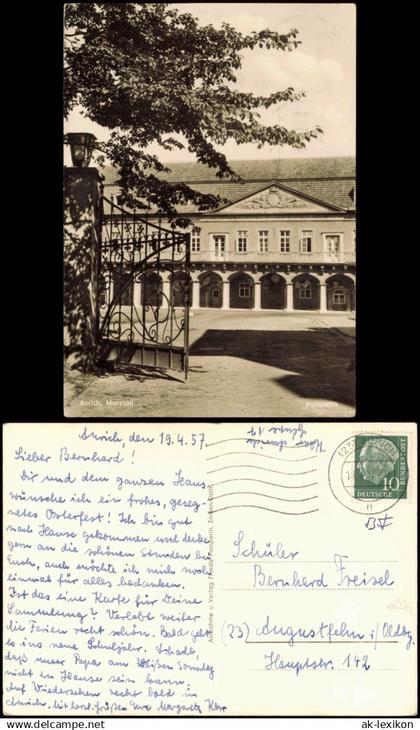 Aurich, Marstall
Aurich, den 19.4.57
Lieber Bernhard!
Dir und dem ganzen Haus
wünsche ich ein frohes, geseg-
netes Osterfest! Ich bin gut
nach Hause gekommen und denke
gern an die schönen Stunden bei
Euch, auch möchte ich mich noch
einmal für alles bedanken.
Ist das eine Karte für Deine
Sammlung? Verlebt weiter
die Ferien recht schön. Bald geht
es ins neue Schuljahr. Schade,
daß unser Papa am Weißen Sonntag
nicht zu Hause sein kann.
Auf Wiedersehen recht bald in
Aurich. Mit herzl. Grüßen Eure Margarete
Aufnahme u. Verlag:
DEUTSCHE BUNDESPOST
10
Schüler
Bernhard Freisel
(23) Augustfehn i/Oldbg.
Hauptstr. 142
ak-lexikon.com